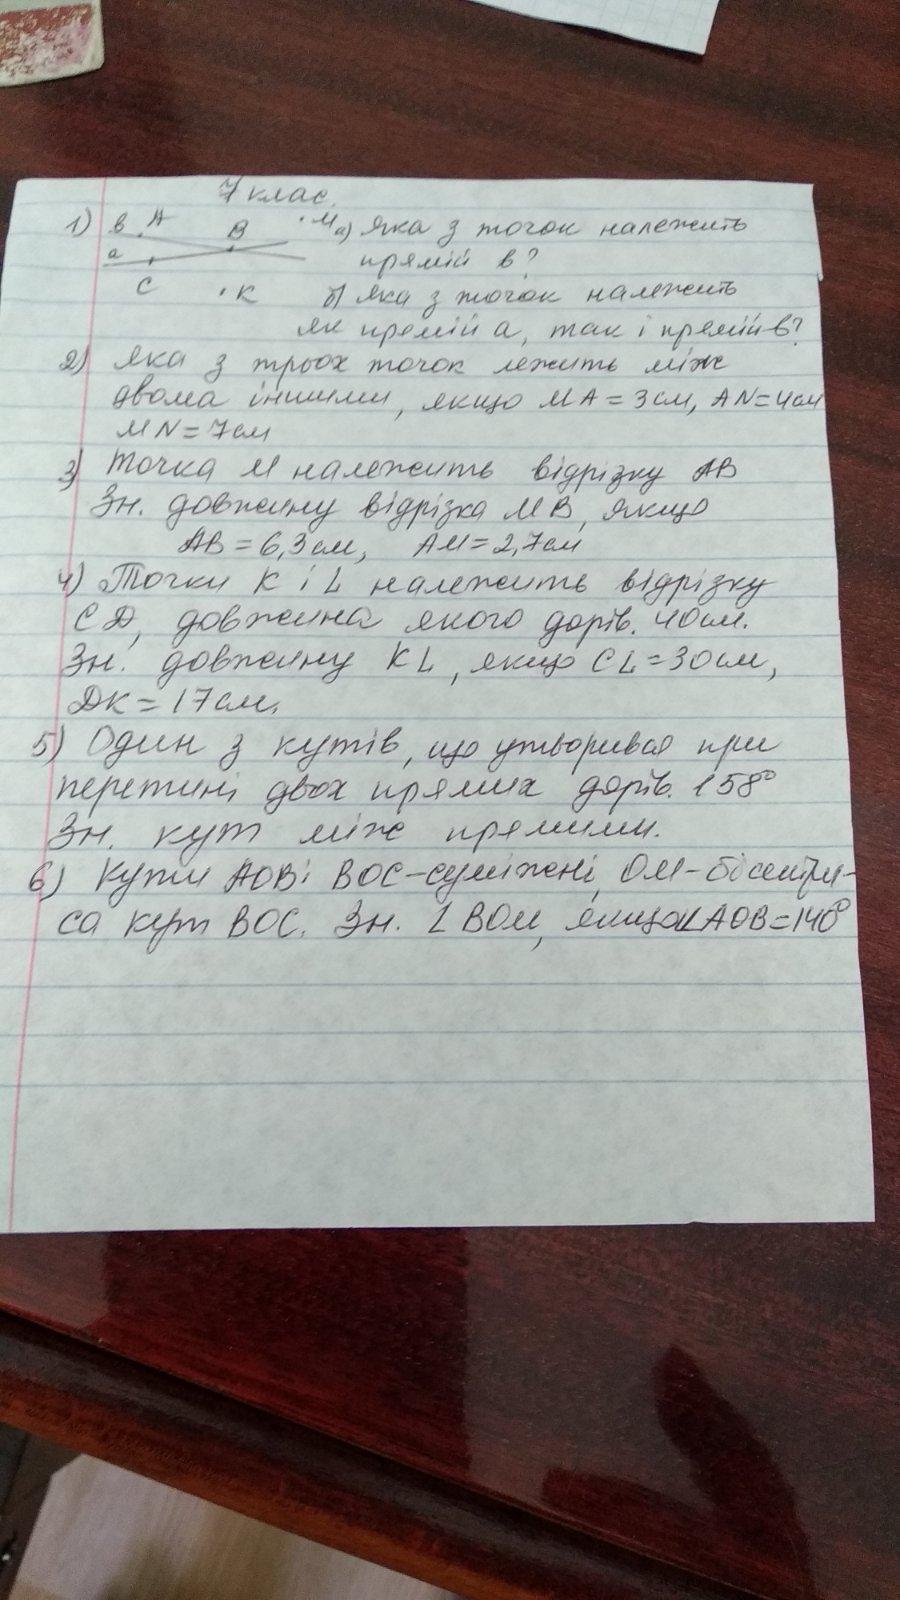 7 клас.
1) в А В М а) Яка з точок належить
а прямій в?
С К б) Яка з точок належить
як прямій а, так і прямій в?
2) Яка з трьох точок лежить між
двома іншими, якщо МА = 3см, AN = 4см
MN = 7см
3) Точка М належить відрізку АВ
Зн. довжину відрізка МВ, якщо
АВ = 6,3см, АМ = 2,7см
4) Точки К і L належить відрізку
CD, довжина якого дорів. 40см.
Зн. довжину KL, якщо CL = 30см,
DK = 17см.
5) Один з кутів, що утворився при
перетині двох прямих дорів. 158°
Зн. кут між прямими.
6) Кути АОВ і ВОС - суміжні, ОМ - бісектри-
са кут ВОС. Зн. ∠ВОМ, якщо ∠АОВ = 140°